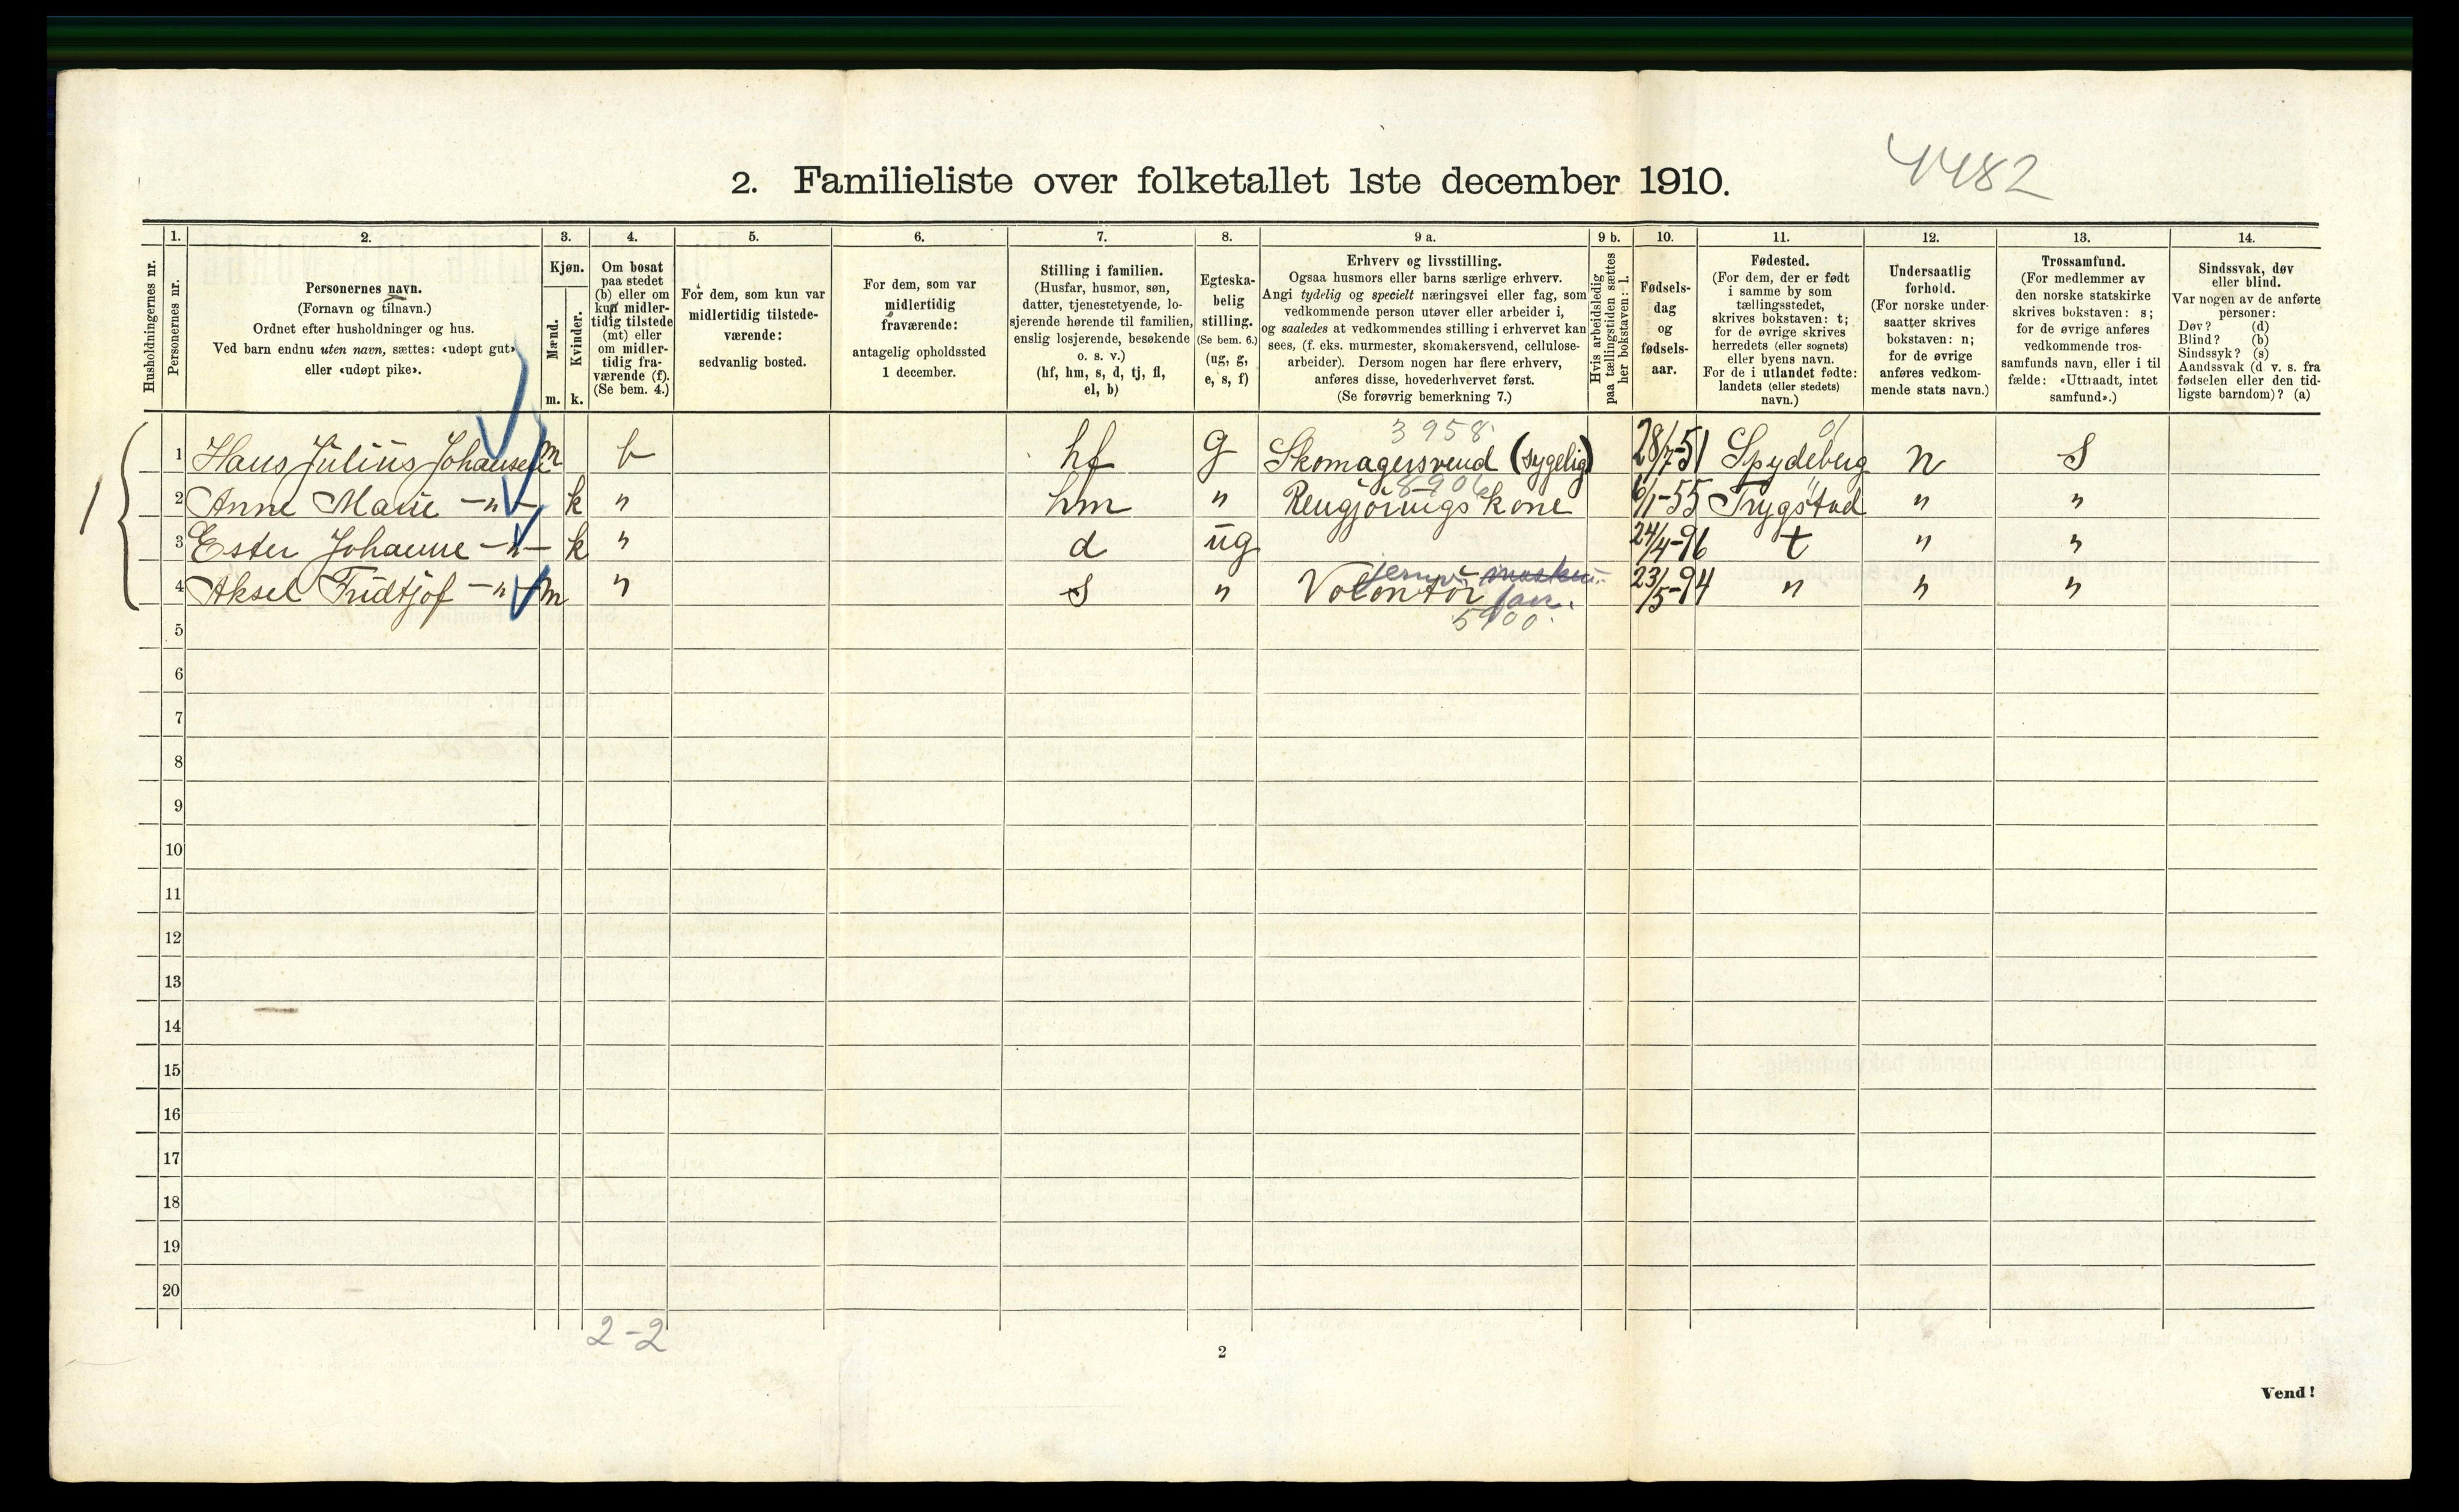 4482
2. Familieliste over folketallet 1ste december 1910.
Husholdningernes nr.
1.
Personernes nr.
2.
Personernes navn.
(Fornavn og tilnavn.)
Ordnet efter husholdninger og hus.
Ved barn endnu uten navn, sættes: «udøpt gut»
eller «udøpt pike».
3.
Kjøn.
Mænd.
Kvinder.
m. k.
4.
Om bosat
paa stedet
(b) eller om
kun midler-
tidig tilstede
(mt) eller
om midler-
tidig fra-
værende (f).
(Se bem. 4.)
5.
For dem, som kun var
midlertidig tilstede-
værende:
sedvanlig bosted.
6.
For dem, som var
midlertidig
fraværende:
antagelig opholdssted
1 december.
7.
Stilling i familien.
(Husfar, husmor, søn,
datter, tjenestetyende, lo-
sjerende hørende til familien,
enslig losjerende, besøkende
o. s. v.)
(hf, hm, s, d, tj, fl,
el, b)
8.
Egteska-
belig
stilling.
(Se bem. 6.)
(ug, g,
e, s, f)
9 a.
Erhverv og livsstilling.
Ogsaa husmors eller barns særlige erhverv.
Angi tydelig og specielt næringsvei eller fag, som
vedkommende person utøver eller arbeider i,
og saaledes at vedkommendes stilling i erhvervet kan
sees, (f. eks. murmester, skomakersvend, cellulose-
arbeider). Dersom nogen har flere erhverv,
anføres disse, hovederhvervet først.
(Se forøvrig bemerkning 7.)
9 b.
Hvis arbeidsledig
paa tællingstiden sættes
her bokstaven: l.
10.
Fødsels-
dag
og
fødsels-
aar.
11.
Fødested.
(For dem, der er født
i samme by som
tællingsstedet,
skrives bokstaven: t;
for de øvrige skrives
herredets (eller sognets)
eller byens navn.
For de i utlandet fødte:
landets (eller stedets)
navn.)
12.
Undersaatlig
forhold.
(For norske under-
saatter skrives
bokstaven: n;
for de øvrige
anføres vedkom-
mende stats navn.)
13.
Trossamfund.
(For medlemmer av
den norske statskirke
skrives bokstaven: s;
for de øvrige anføres
vedkommende tros-
samfunds navn, eller i til
fælde: «Uttraadt, intet
samfund».)
14.
Sindssvak, døv
eller blind.
Var nogen av de anførte
personer:
Døv? (d)
Blind? (b)
Sindssyk? (s)
Aandssvak (d. v. s. fra
fødselen eller den tid-
ligste barndom)? (a)
3958
1 1 Hans Julius Johansen m b hf g Skomagersvend (sygelig) 28/7-51 Spydeberg n S
2 Anne Marie -"- k " hm " Rengjøringskone 6/1-55 Trygstad " "
3 Ester Johanne -"- k " d ug 24/4-96 t " "
4 Aksel Fridtjof -"- m " s " Volontør 23/5-94 " " "
5900
5
6
7
8
9
10
11
12
13
14
15
16
17
18
19
20
2-2
2
Vend!